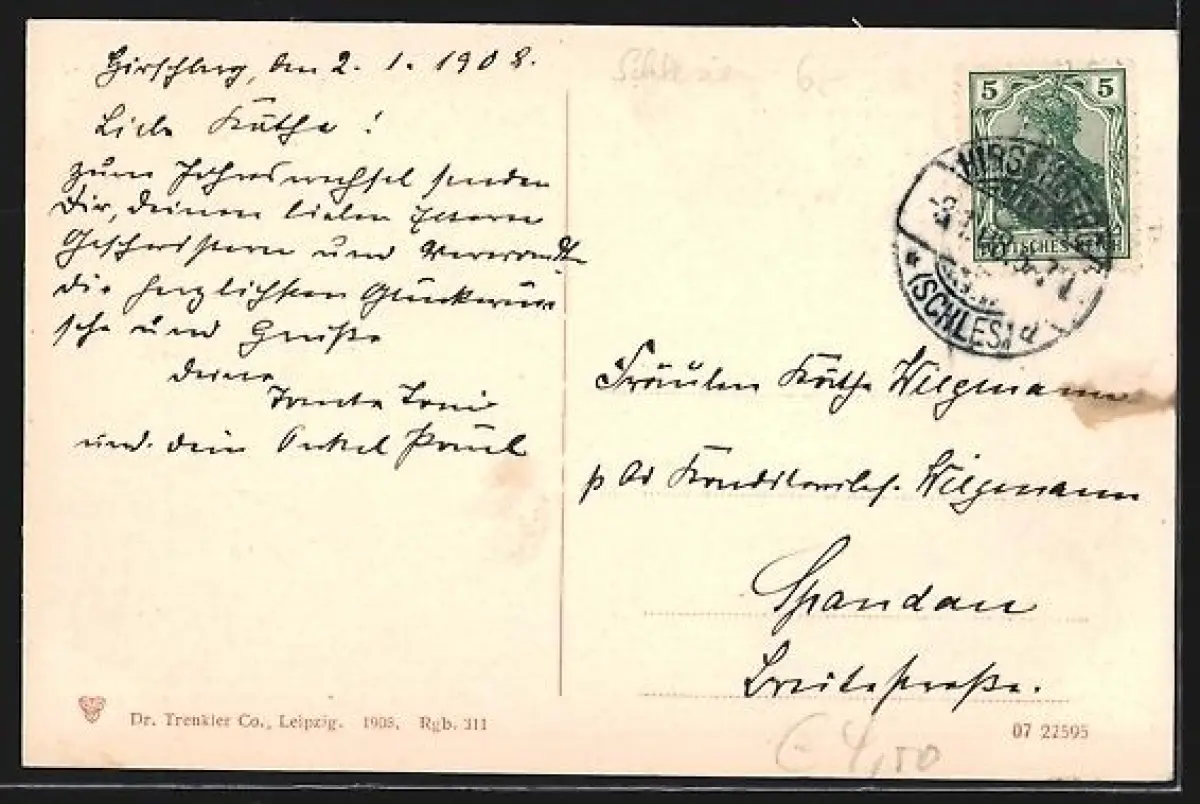 Hirschberg, den 2. 1. 1908.
Liebe Käthe!
zum Jahreswechsel senden
Dir, deinen lieben Eltern
Geschwistern und Verwandte
die herzlichsten Glückwün
sche und Grüße
deine
Tante Toni
und dein Onkel Paul
Dr. Trenkler Co., Leipzig. 1908. Rgb. 311
Schlesien 6,-
5 5
DEUTSCHES REICH
HIRSCHBERG
* (SCHLES.) d
Fräulein Käthe Wiegmann
Wiegmann
Spandau
Breitestraße.
07 22595
€ 4,50